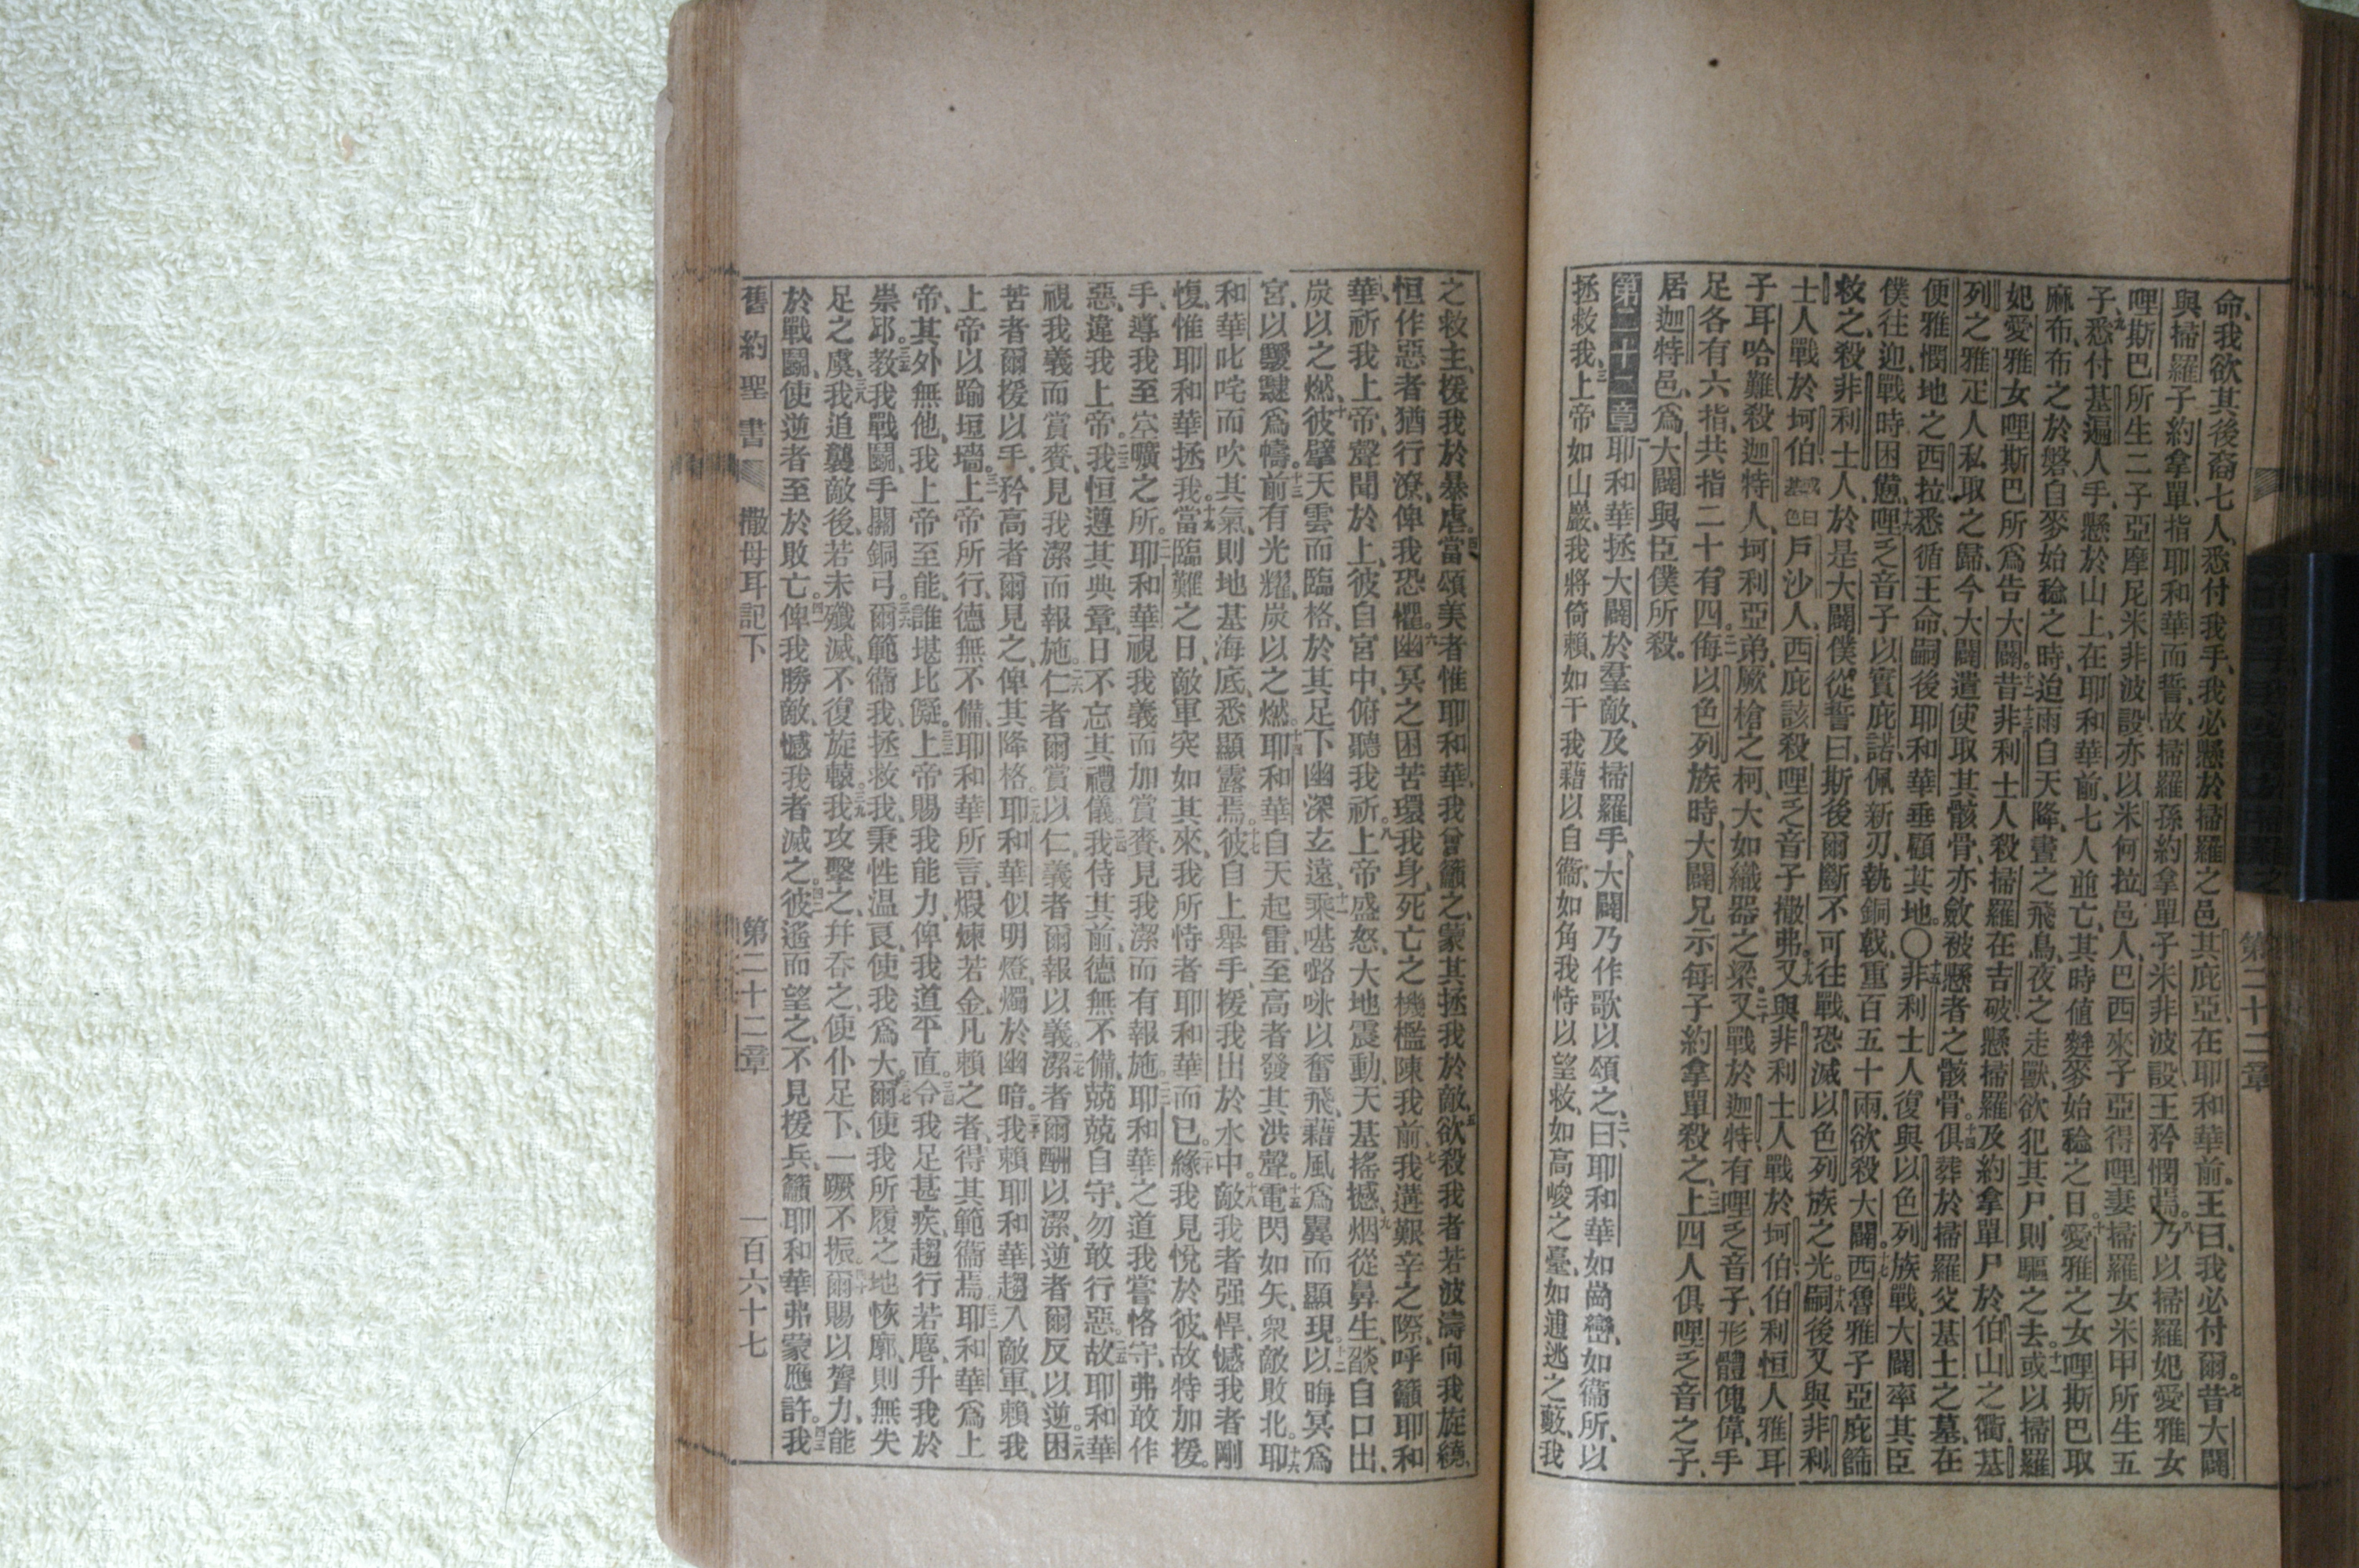 命、我欲其後裔七人、悉付我手、我必懸於掃羅之邑其庇亞、在耶和華前。王曰、我必付爾。七昔大闢
與掃羅子約拿單、指耶和華而誓、故掃羅孫約拿單子米非波設、王矜憫焉。八乃以掃羅妃愛雅女
哩斯巴所生二子亞摩尼米非波設、亦以米何拉邑人、巴西來子亞得哩妻掃羅女米甲所生五
子、九悉付基遍人手、懸於山上、在耶和華前、七人並亡、其時值麰麥始稔之日。十愛雅之女哩斯巴取
麻布、布之於磐、自麥始稔之時、迨雨自天降、晝之飛鳥、夜之走獸、欲犯其尸、則驅之去。十一或以掃羅
妃愛雅女哩斯巴所爲告大闢。十二昔非利士人殺掃羅在吉破、懸掃羅及約拿單尸於伯山之衢、基
列之雅疋人私取之歸、今大闢遣使取其骸骨、亦斂被懸者之骸骨。十四俱葬於掃羅父基土之墓、在
便雅憫地之西拉、悉循王命、嗣後耶和華垂顧其地。〇十五非利士人復與以色列族戰、大闢率其臣
僕往迎、戰時困憊、十六哩乏音子以實庇諾、佩新刃、執銅戟、重百五十兩、欲殺大闢。十七西魯雅子亞庇篩
救之、殺非利士人、於是大闢僕從誓曰、斯後爾斷不可往戰、恐滅以色列族之光。十八嗣後又與非利
士人戰於坷伯、或曰基色戶沙人、西庇該殺哩乏音子撒弗。十九又與非利士人戰於坷伯、伯利恒人雅耳
子耳哈難殺迦特人、坷利亞弟、厥槍之柯、大如織器之梁。二十又戰於迦特、有哩乏音子、形體傀偉、手
足各有六指、共指二十有四。二一侮以色列族時、大闢兄示每子約拿單殺之。二二上四人俱哩乏音之子、
居迦特邑、爲大闢與臣僕所殺。
第二十二章 一耶和華拯大闢於羣敵、及掃羅手、大闢乃作歌以頌之、二曰、耶和華如崗巒、如衞所、以
拯救我、三上帝如山巖、我將倚賴、如干我藉以自衞、如角我恃以望救、如高峻之臺、如逋逃之藪、我
之救主、援我於暴虐。四當頌美者惟耶和華、我曾籲之、蒙其拯我於敵、五欲殺我者若波濤向我旋繞、
恒作惡者猶行潦、俾我恐懼。六幽冥之困苦環我身、死亡之機檻陳我前、七我遘艱辛之際、呼籲耶和
華、祈我上帝、聲聞於上、彼自宮中、俯聽我祈。八上帝盛怒、大地震動、天基搖撼、九烟從鼻生、燄自口出、
炭以之燃、十彼擘天雲而臨格、於其足下幽深玄遠、十一乘𠼻𡀔咏以奮飛、藉風爲翼而顯現。十二以晦冥爲
宮、以靉靆爲幬。十三前有光耀、炭以之燃。十四耶和華自天起雷、至高者發其洪聲。十五電閃如矢、衆敵敗北。十六耶
和華叱咤而吹其氣、則地基海底、悉顯露焉。十七彼自上舉手、援我出於水中。十八敵我者强悍、憾我者剛
愎、惟耶和華拯我。十九當臨難之日、敵軍突如其來、我所恃者耶和華而已。二十緣我見悅於彼、故特加援
手、導我至空曠之所。二一耶和華視我義而加賞賚、見我潔而有報施。二二耶和華之道我嘗恪守、弗敢作
惡、違我上帝。二三我恒遵其典章、日不忘其禮儀。二四我侍其前、德無不備、兢兢自守、勿敢行惡。二五故耶和華
視我義而賞賚、見我潔而報施。二六仁者爾賞以仁、義者爾報以義、二七潔者爾酬以潔、逆者爾反以逆。二八困
苦者爾援以手、矜高者爾見之、俾其降格。二九耶和華似明燈、燭於幽暗。三十我賴耶和華、趨入敵軍、賴我
上帝以踰垣墻。三一上帝所行、德無不備、耶和華所言、煆煉若金、凡賴之者、得其範衞焉。三二耶和華爲上
帝、其外無他、我上帝至能、誰堪比儗。三三上帝賜我能力、俾我道平直。三四令我足甚疾、趨行若麀、升我於
崇邱。三五教我戰鬭、手關銅弓。三六爾範衞我、拯救我、秉性温良、使我爲大。三七爾使我所履之地恢廓、則無失
足之虞、三八我追襲敵後、若未殲滅、不復旋轅。三九我攻擊之、幷吞之、使仆足下、一蹶不振。四十爾賜以膂力、能
於戰鬭、使逆者至於敗亡。四一俾我勝敵、憾我者滅之。四二彼遙而望之、不見援兵、籲耶和華弗蒙應許。四三我
舊約聖書 撒母耳記下 第二十二章 一百六十七